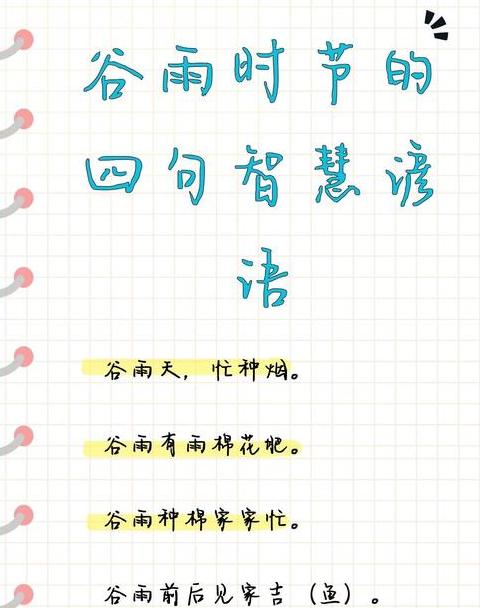 谷雨时节的
四句智慧谚
语
谷雨天，忙种烟。
谷雨有雨棉花肥。
谷雨种棉家家忙。
谷雨前后见家吉（鱼）。